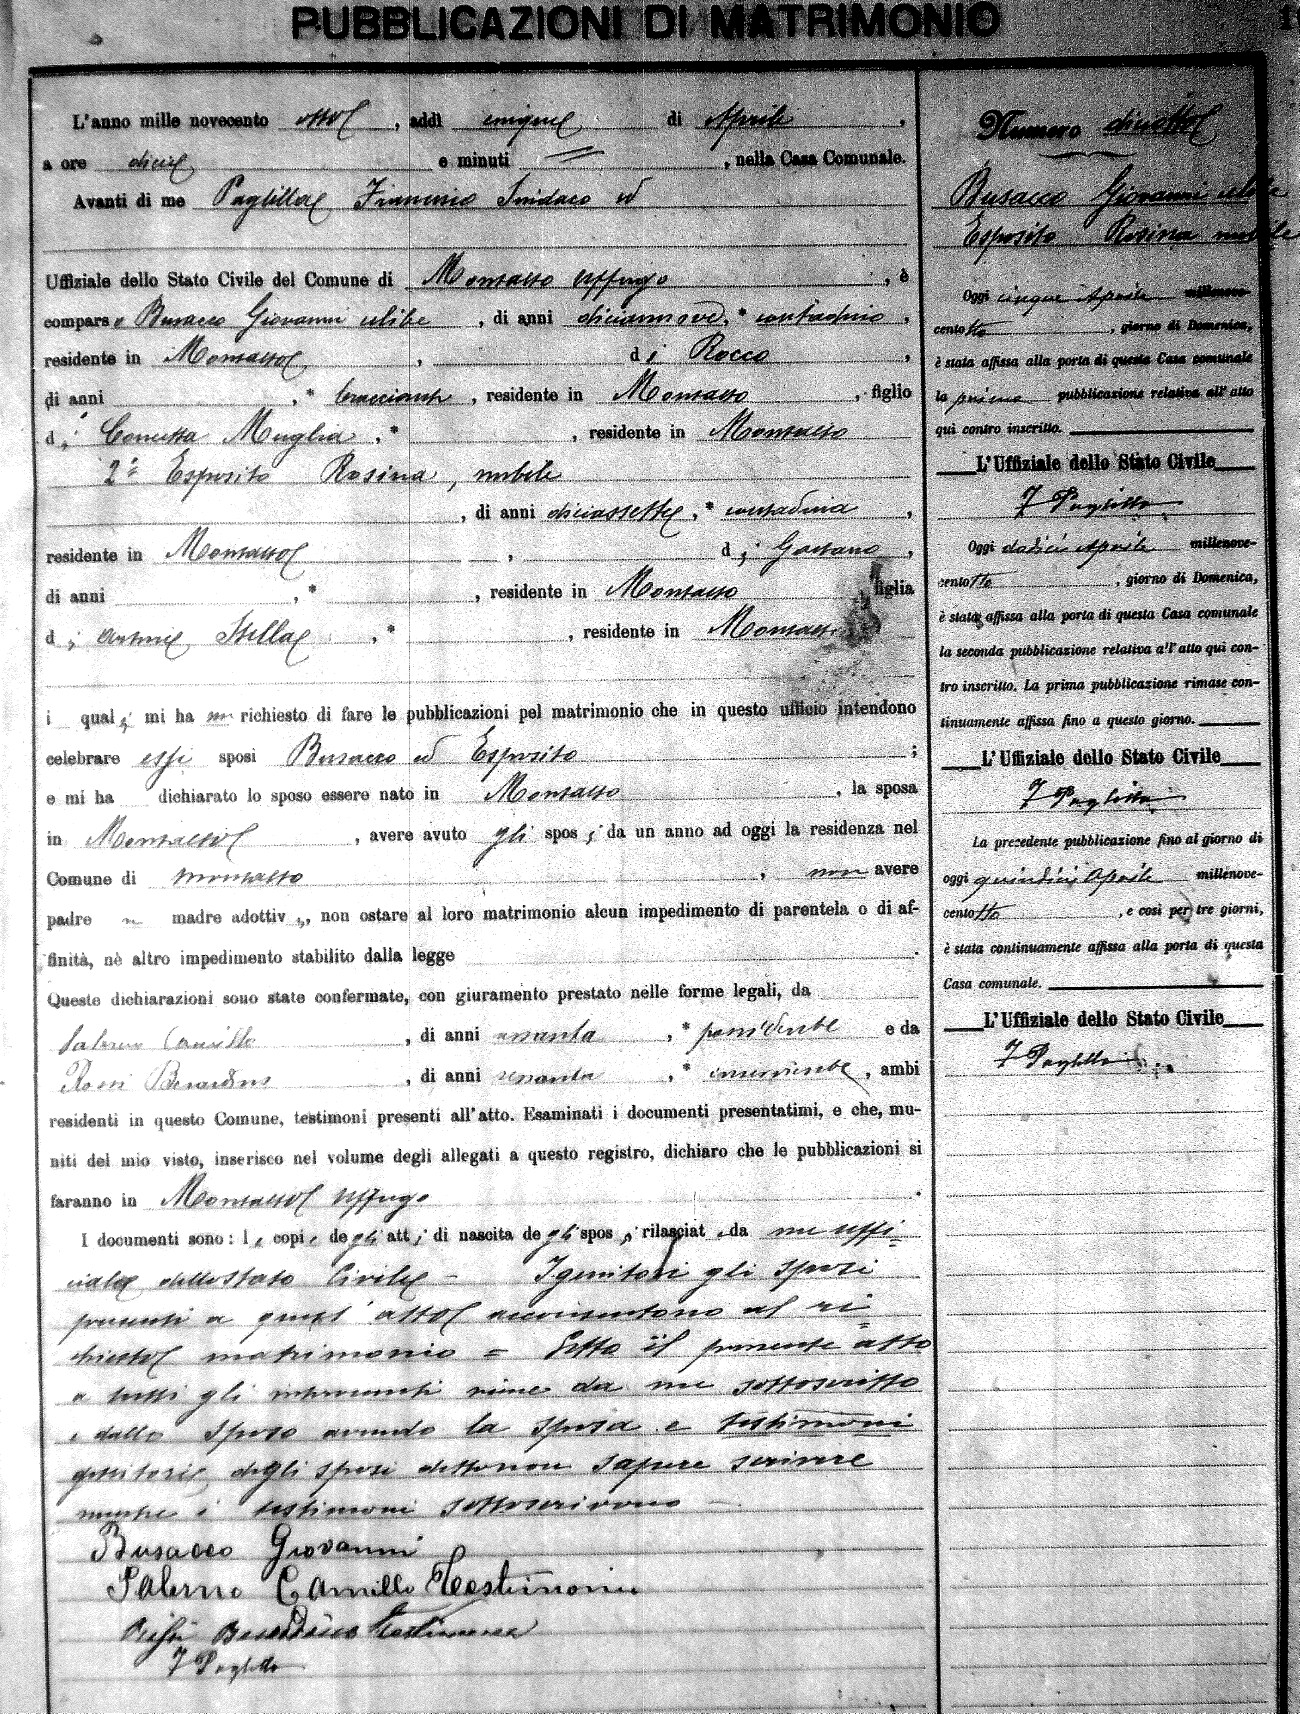 PUBBLICAZIONI DI MATRIMONIO
L'anno mille novecento otto, addì cinque di Aprile,
a ore dieci e minuti =, nella Casa Comunale.
Avanti di me Sindaco ed
Uffiziale dello Stato Civile del Comune di Montalto Uffugo, è
comparso Busacco Giovanni celibe, di anni diciannove, * contadino,
residente in Montalto, di Rocco,
di anni , * bracciante, residente in Montalto, figlio
di Muglia, * , residente in Montalto
2° Esposito Rosina, nubile
, di anni diciassette, * contadina,
residente in Montalto, di Gaetano,
di anni , * , residente in Montalto figlia
di Stella, * , residente in Montalto
i quali mi hanno richiesto di fare le pubblicazioni pel matrimonio che in questo ufficio intendono
celebrare essi sposi Busacco ed Esposito ;
e mi ha dichiarato lo sposo essere nato in Montalto, la sposa
in Montalto, avere avuto gli sposi da un anno ad oggi la residenza nel
Comune di Montalto, non avere
padre o madre adottivi, non ostare al loro matrimonio alcun impedimento di parentela o di af-
finità, nè altro impedimento stabilito dalla legge .
Queste dichiarazioni sono state confermate, con giuramento prestato nelle forme legali, da
Palerno Camillo, di anni , * possidente e da
Berardino, di anni , * inserviente, ambi
residenti in questo Comune, testimoni presenti all'atto. Esaminati i documenti presentatimi, e che, mu-
niti del mio visto, inserisco nel volume degli allegati a questo registro, dichiaro che le pubblicazioni si
faranno in Montalto Uffugo .
I documenti sono: le copie degli atti di nascita degli sposi, rilasciate da me uffi=
ciale dello Stato Civile - I genitori gli sposi
presenti a quest'atto acconsentono al ri=
chiesto matrimonio = Letto il presente atto
a tutti gli intervenuti viene da me sottoscritto
e dallo sposo avendo la sposa e testimoni
genitori degli sposi detto non sapere scrivere
mentre i testimoni sottoscrivono -
Busacco Giovanni
Palerno Camillo Testimonio
Testimone
Numero diciotto
Busacco Giovanni celibe
Esposito Rosina nubile
Oggi cinque Aprile millenove-
cento otto, giorno di Domenica,
è stata affissa alla porta di questa Casa comunale
la prima pubblicazione relativa all'atto
qui contro inscritto.
L'Uffiziale dello Stato Civile
Oggi dodici Aprile millenove-
cento otto, giorno di Domenica,
è stata affissa alla porta di questa Casa comunale
la seconda pubblicazione relativa all'atto qui con-
tro inscritto. La prima pubblicazione rimase con-
tinuamente affissa fino a questo giorno.
L'Uffiziale dello Stato Civile
La precedente pubblicazione fino al giorno di
oggi quindici Aprile millenove-
cento otto, e così per tre giorni,
è stata continuamente affissa alla porta di questa
Casa comunale.
L'Uffiziale dello Stato Civile